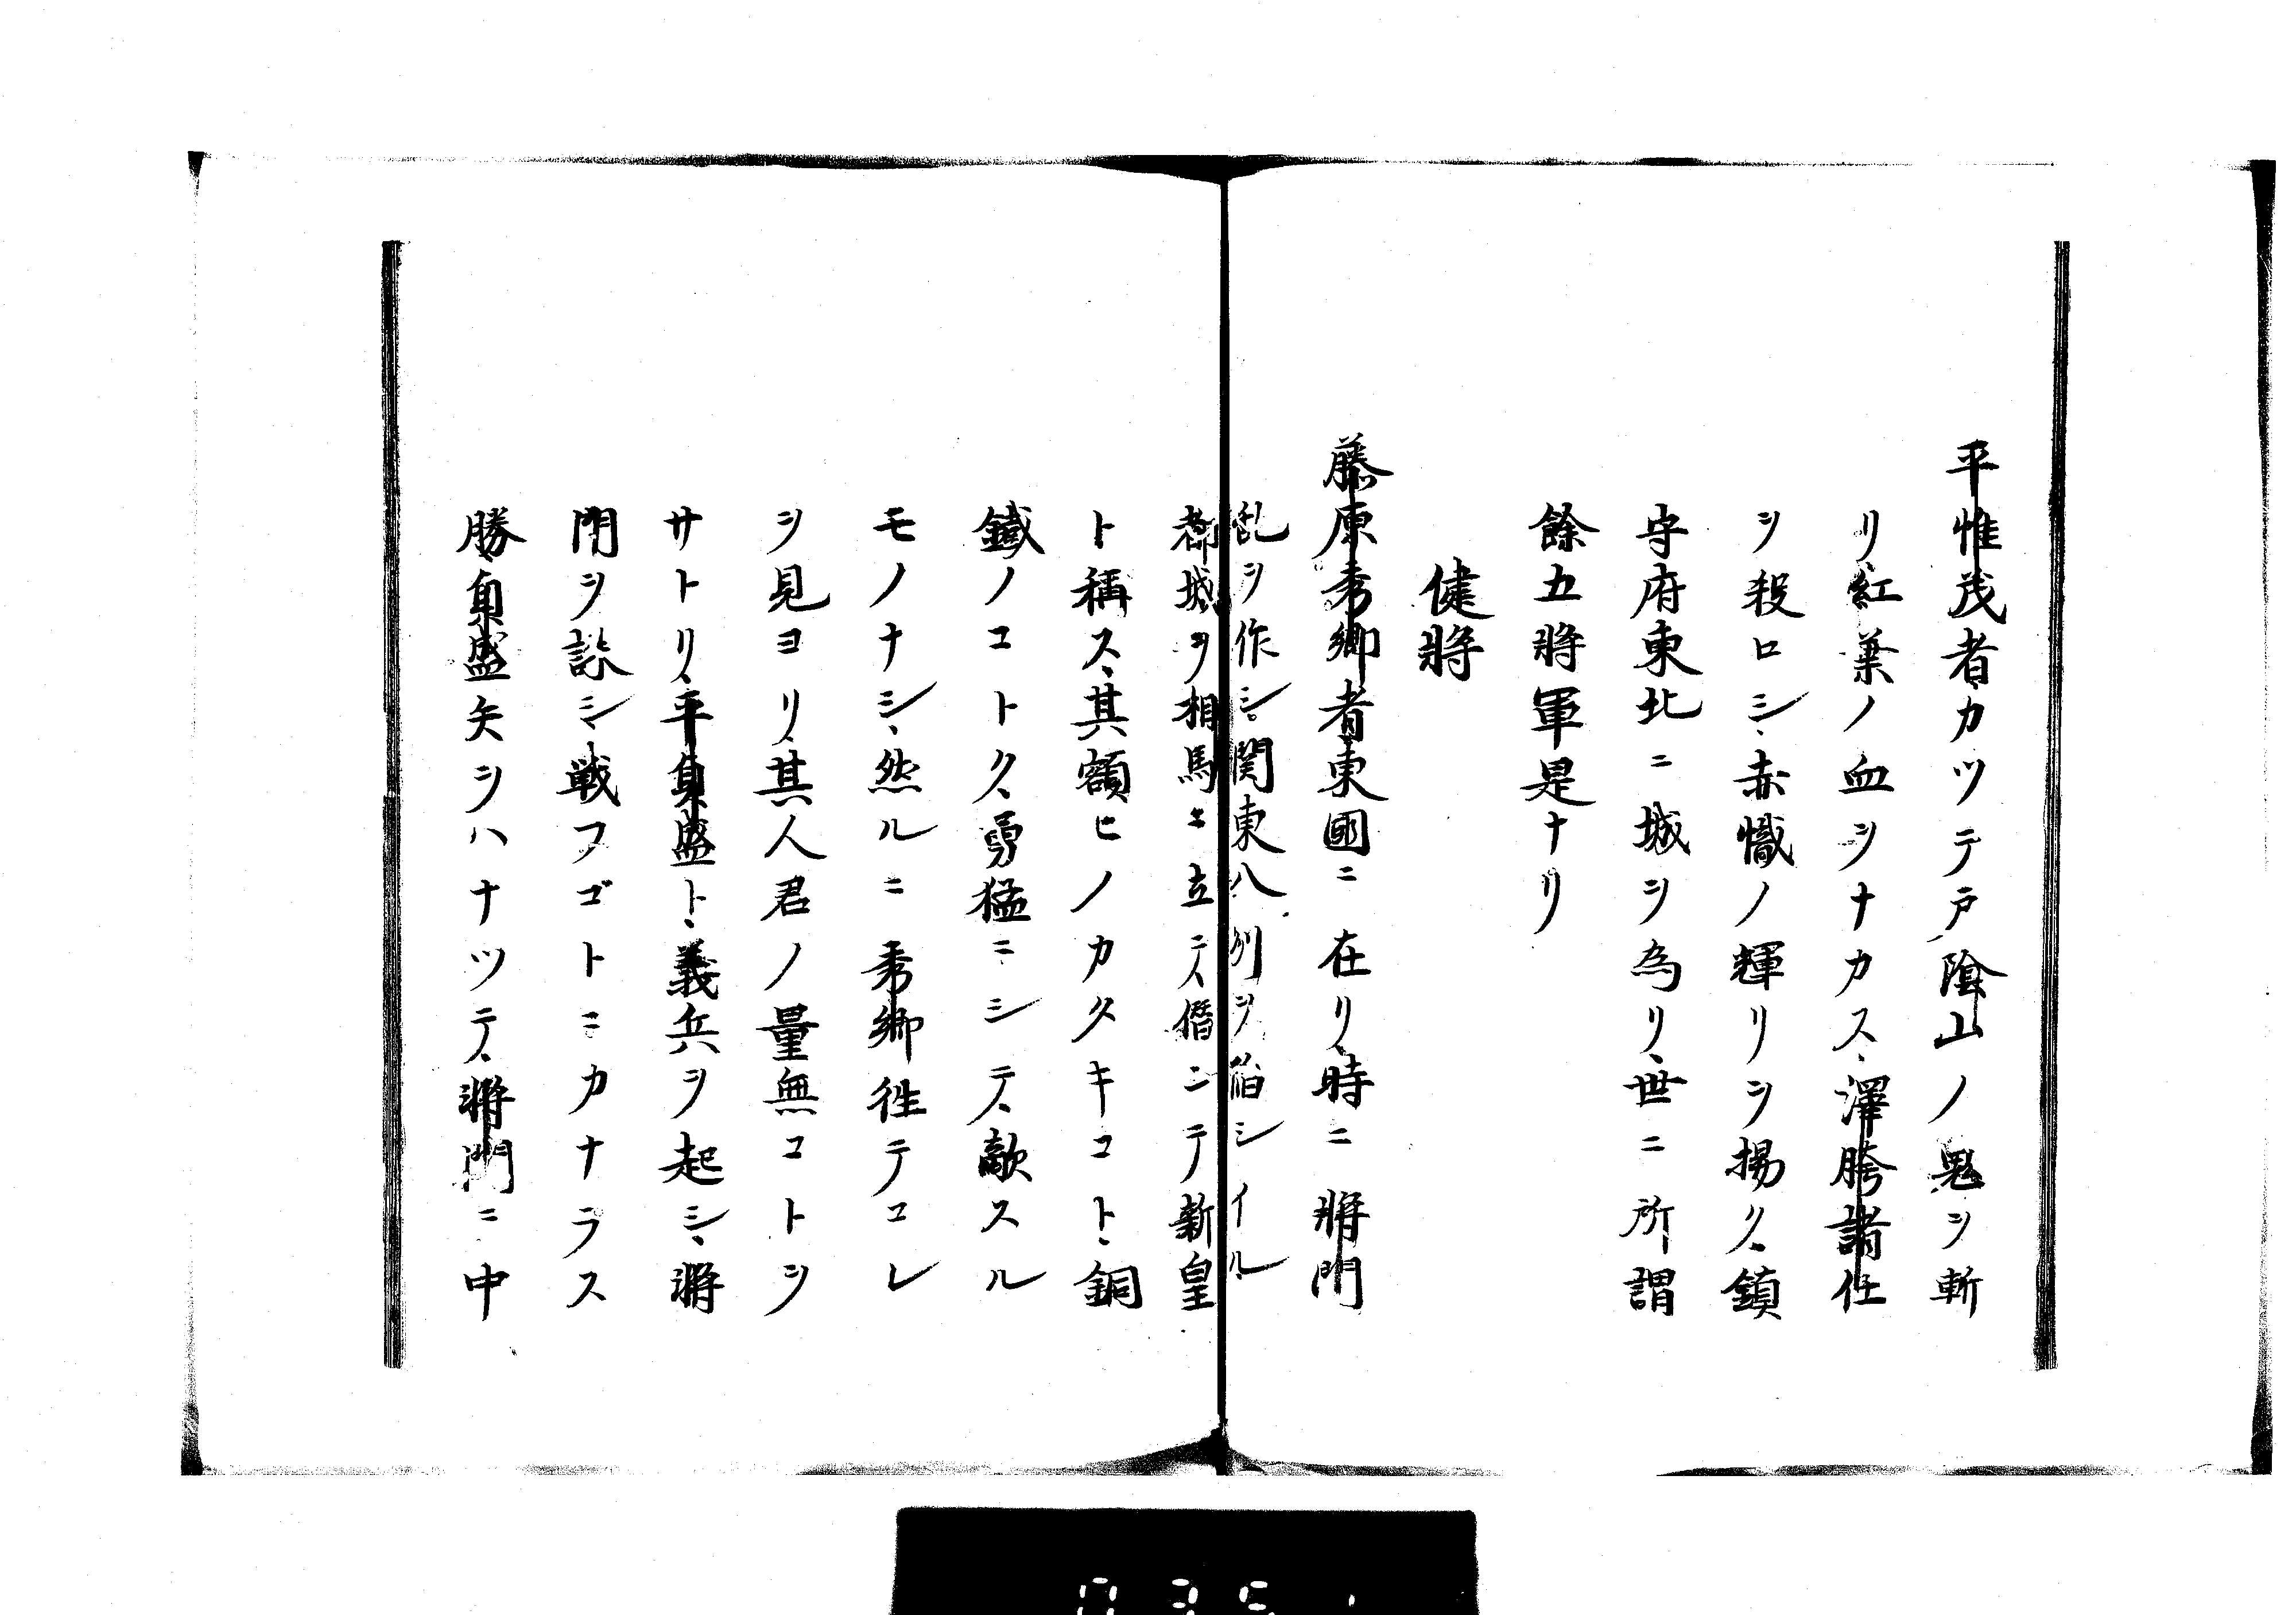 平惟茂者カツテ戸隂山ノ鬼ヲ斬
リ紅葉ノ血ヲナカス、澤胯諸任
ヲ殺ロシ、赤幟ノ輝リヲ揚ク、鎮
守府東北ニ城ヲ為リ、世ニ所謂
餘五將軍是ナリ
健將
藤原秀郷者東國ニ在リ、時ニ將門
乱ヲ作シ、関東八列ヲ陷シイル、
都城ヲ相馬ニ立テ、僭シテ新皇
ト稱ス、其額ヒノカタキコト、銅
鐵ノコトク、勇猛ニシテ、敵スル
モノナシ、然ルニ秀郷徃テコレ
ヲ見ヨリ、其人君ノ量無コトヲ
サトリ、平貞盛ト、義兵ヲ起シ、將
門ヲ誅シ、戦フゴトニカナラス
勝貞盛矢ヲハナツテ、將門ニ中